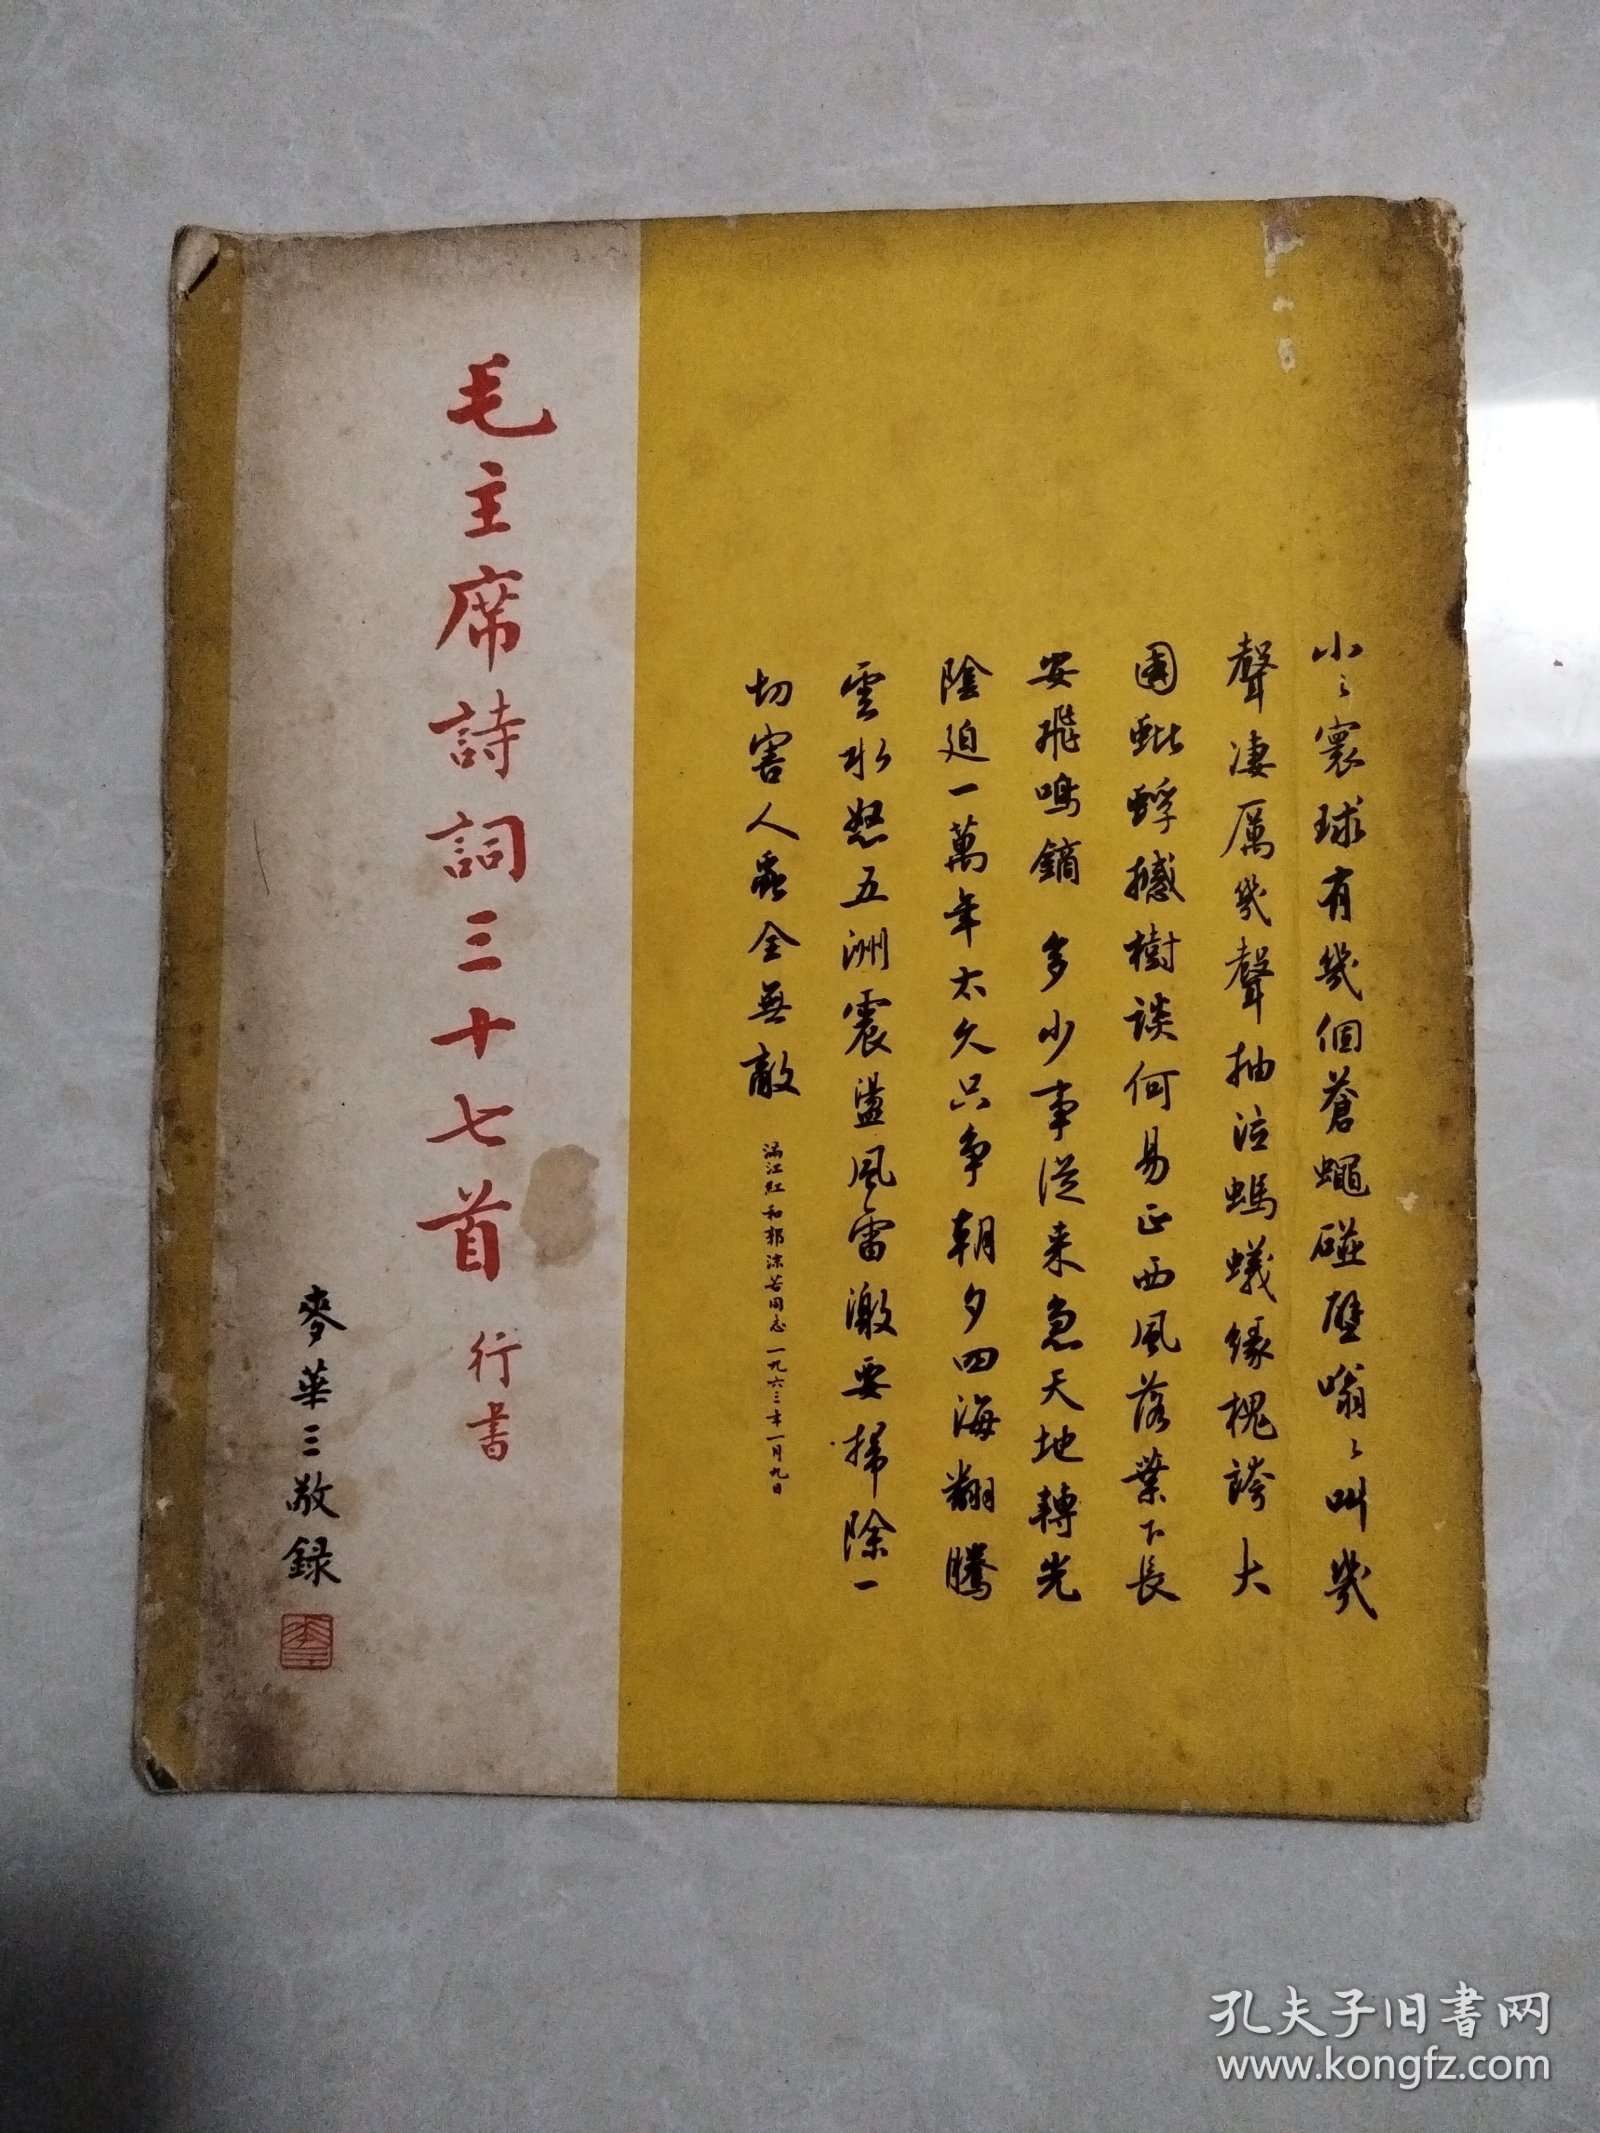 小々寰球有幾個蒼蠅碰壁嗡々叫幾
聲凄厲幾聲抽泣螞蟻緣槐誇大
國蚍蜉撼樹談何易正西風落葉下長
安飛鳴鏑多少事從来急天地轉光
陰迫一萬年太久只争朝夕四海翻騰
雲水怒五洲震盪風雷激要掃除一
切害人蟲全無敵
滿江紅和郭沫若同志一九六三年一月九日
毛主席詩詞三十七首行書
麥華三敬録
孔夫子旧书网
www.kongfz.com